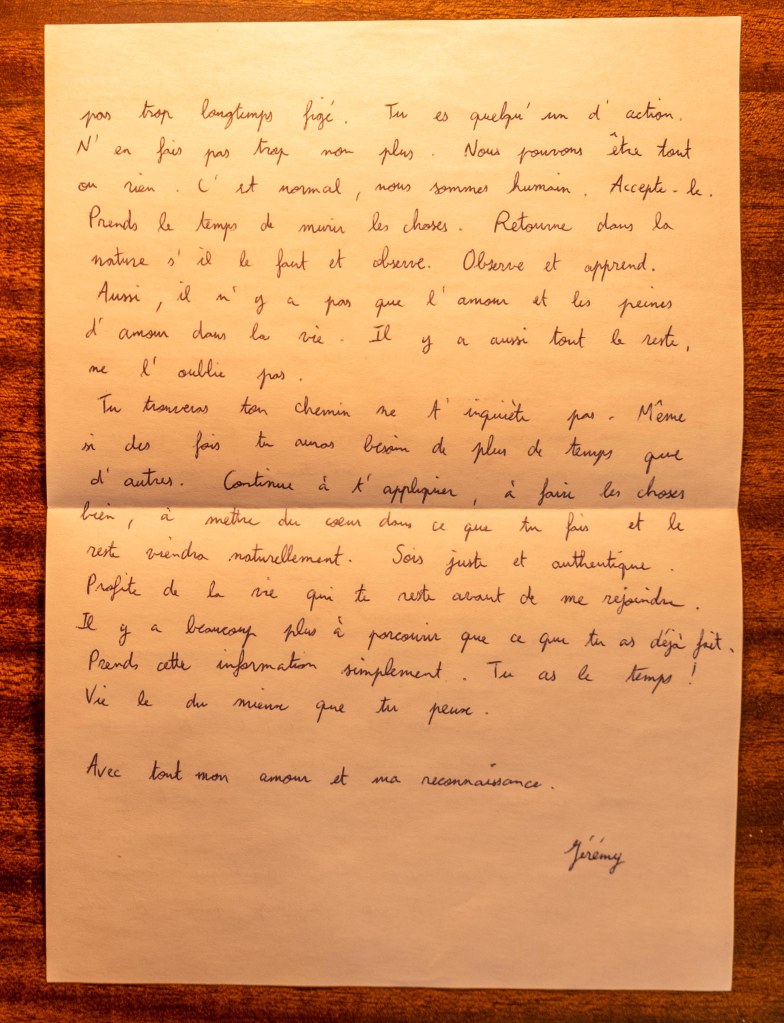 pas trop longtemps figé. Tu es quelqu'un d'action.
N'en fais pas trop non plus. Nous pouvons être tout
ou rien. C'est normal, nous sommes humain. Accepte-le.
Prends le temps de murir les choses. Retourne dans la
nature s'il le faut et observe. Observe et apprend.
Aussi, il n'y a pas que l'amour et les peines
d'amour dans la vie. Il y a aussi tout le reste,
ne l'oublie pas.
Tu trouveras ton chemin ne t'inquiète pas. Même
si des fois tu auras besoin de plus de temps que
d'autres. Continue à t'appliquer, à faire les choses
bien, à mettre du coeur dans ce que tu fais et le
reste viendra naturellement. Sois juste et authentique.
Profite de la vie qui te reste avant de me rejoindre.
Il y a beaucoup plus à parcourir que ce que tu as déjà fait.
Prends cette information simplement. Tu as le temps!
Vie le du mieux que tu peux.
Avec tout mon amour et ma reconnaissance.
Jérémy